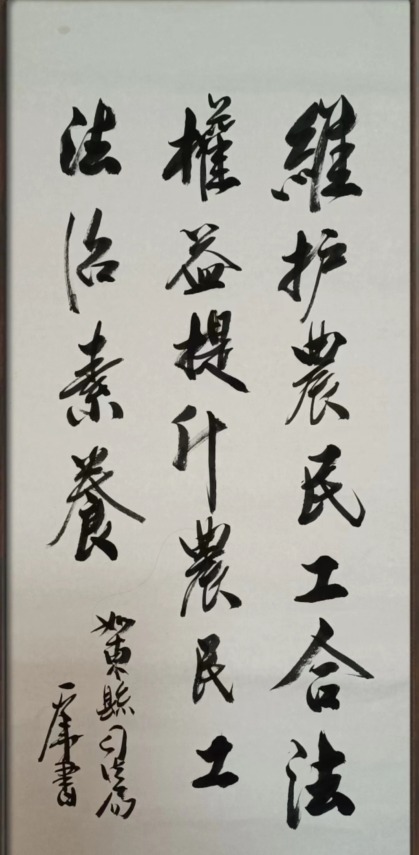 維护農民工合法
權益提升農民工
法治素養
如東縣司法局
一 書